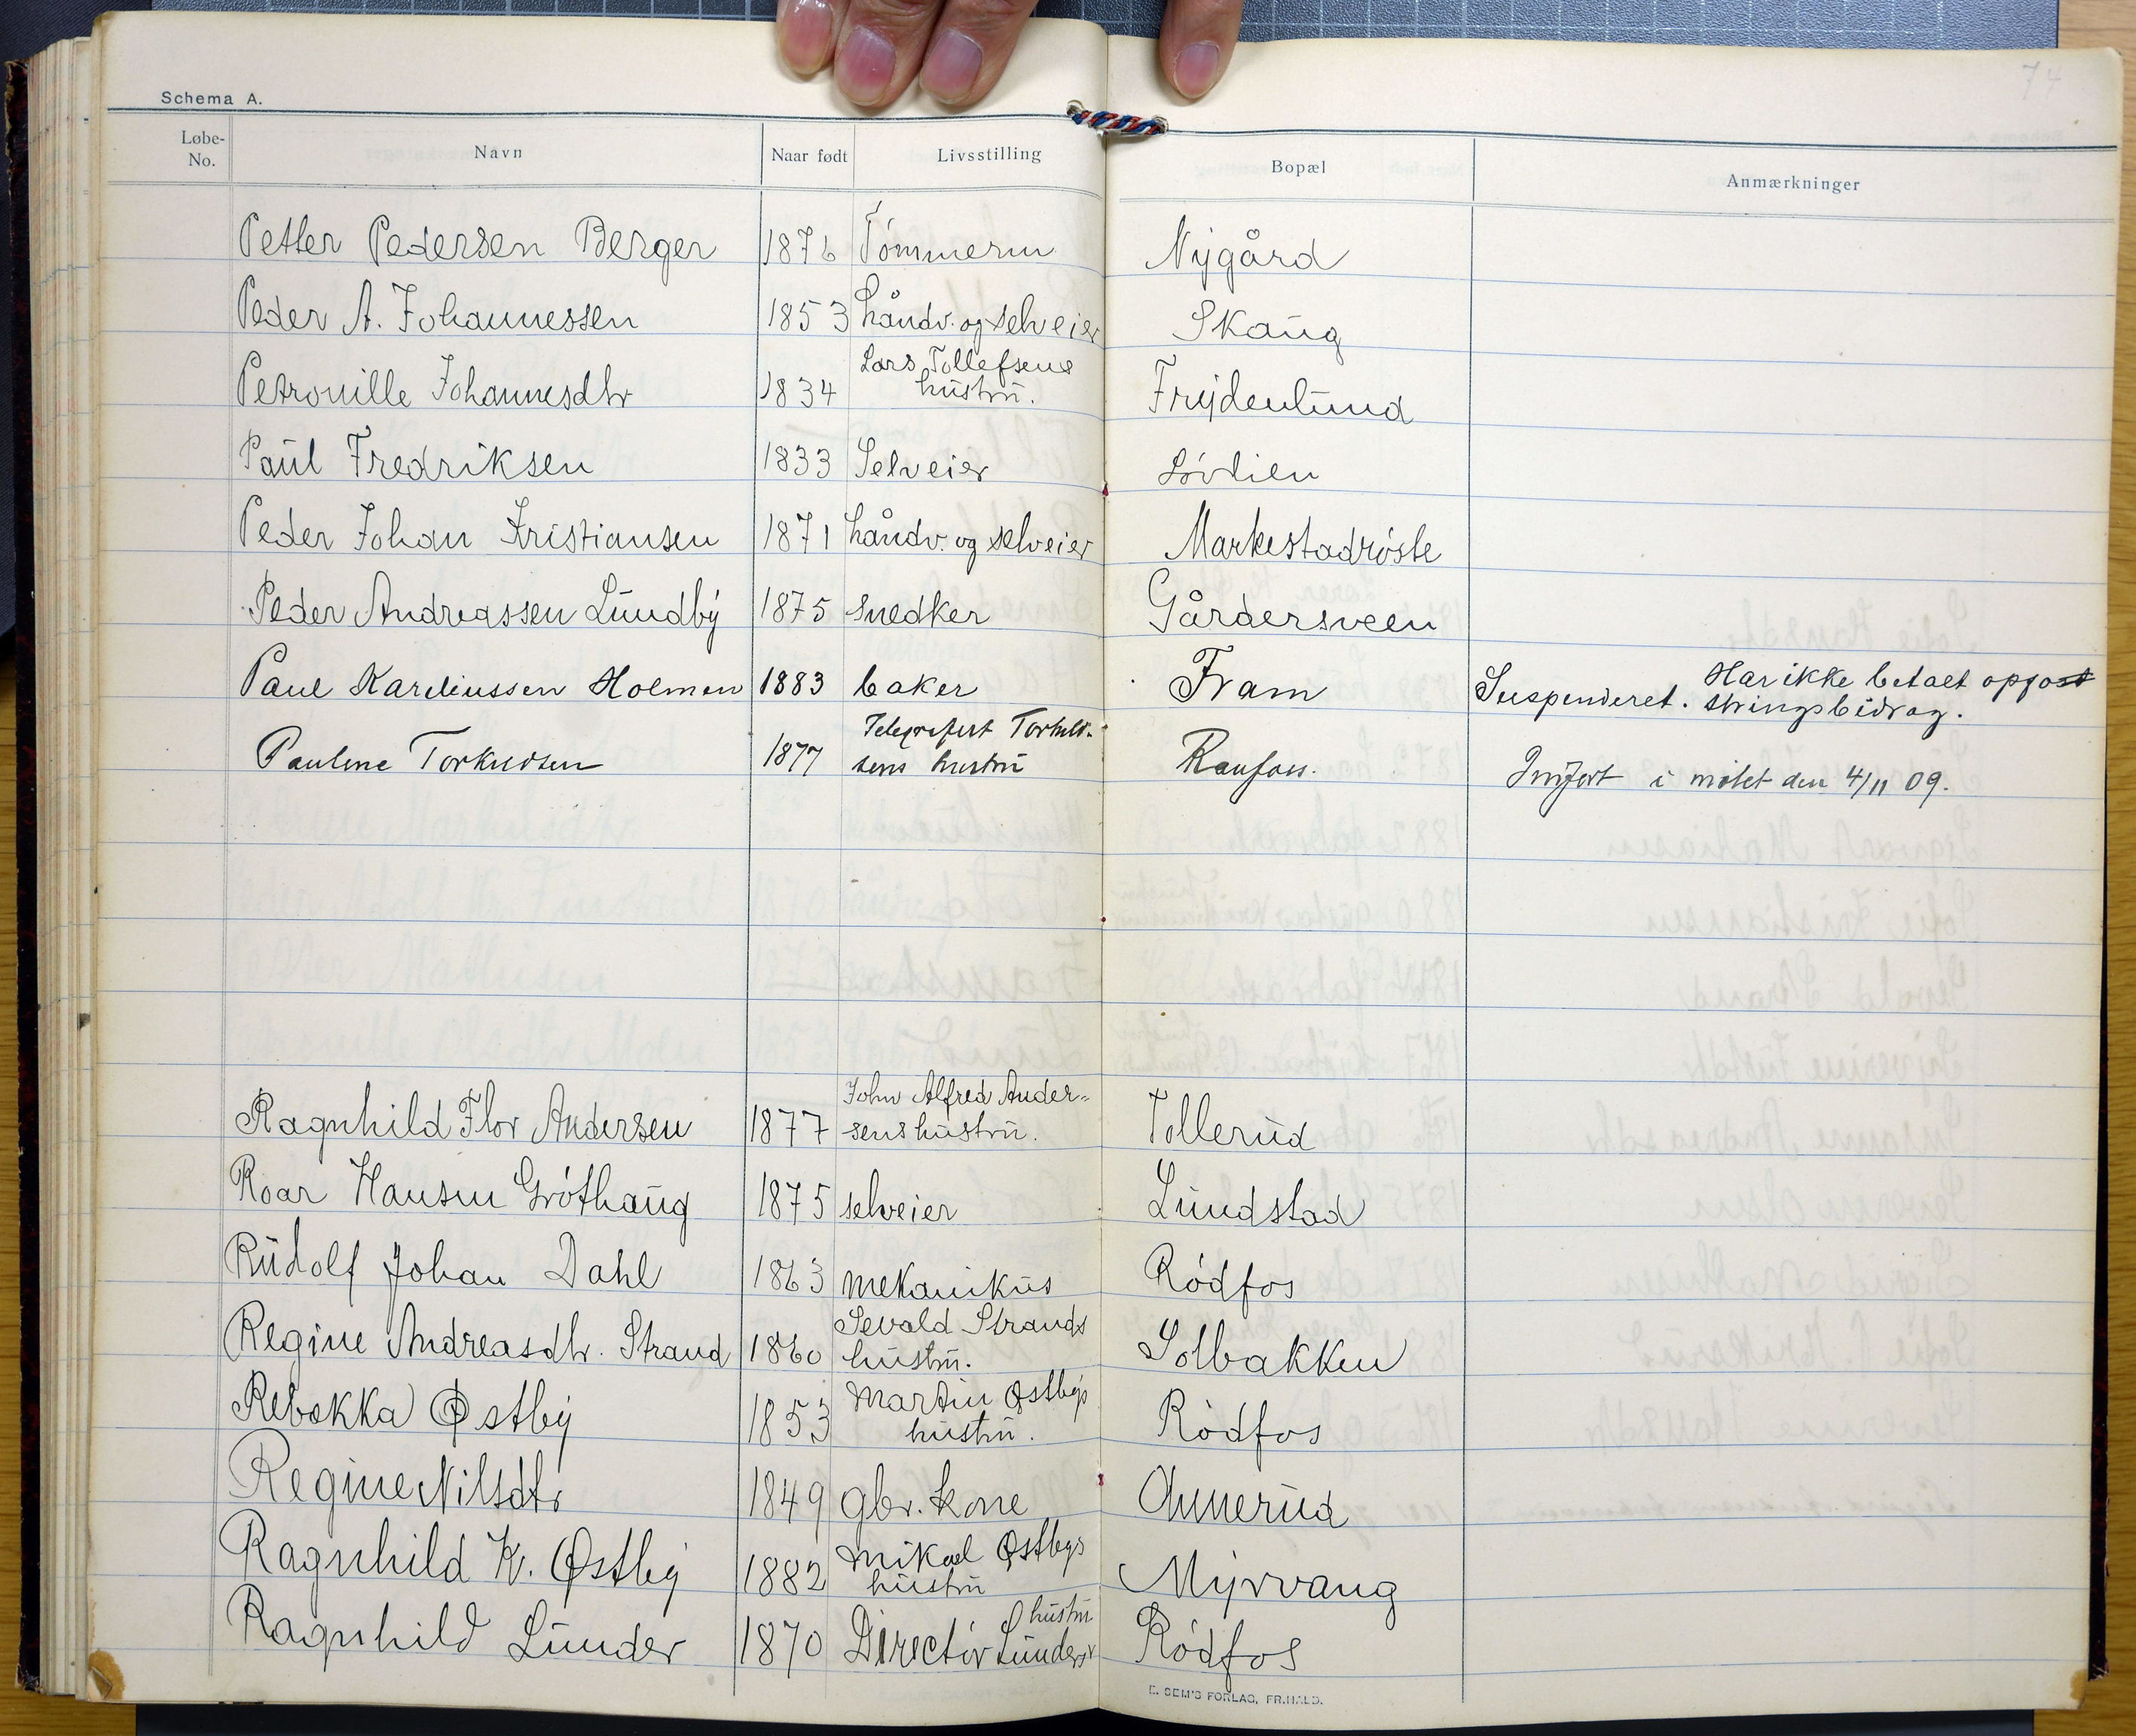 74
Schema A.
Løbe-No. Navn Naar født Livsstilling Bopæl Anmærkninger
Petter Pedersen Berger 1876 Tömmerm Nygård
Peder A. Johannessen 1853 håndv. og selveier Skaug
Petronille Johannesdtr 1834 Lars Tollefsens hustru. Frydenlund
Paul Fredriksen 1833 Selveier Lövlien
Peder Johan Kristiansen 1871 håndv. og selveier Markestadröste
Peder Andreassen Lundby 1875 snedker Gårdersveen
Paul Kareliussen Holmen 1883 baker Fram Suspenderet. Har ikke betalt opfostringsbidrag.
Pauline Torkildsen 1877 Telegrafist Torkildsens hustru Raufoss. Innfört i mötet den 4/11 09.
Ragnhild Flor Andersen 1877 John Alfred Andersens hustru. Tollerud
Roar Hansen Gröthaug 1875 selveier Lundstad
Rudolf Johan Dahl 1863 mekanikus Rödfos
Regine Andreasdtr. Strand 1860 Sevald Strands hustru. Solbakken
Rebekka Østby 1853 Martin Østbys hustru. Rödfos
Regine Nilsdtr 1849 gbr. kone Annerud
Ragnhild K. Østby 1882 Mikael Østbys hustru Myrvang
Ragnhild Lunder 1870 Directör Lunders hustru Rödfos
E. SEM'S FORLAG, FR.HALD.